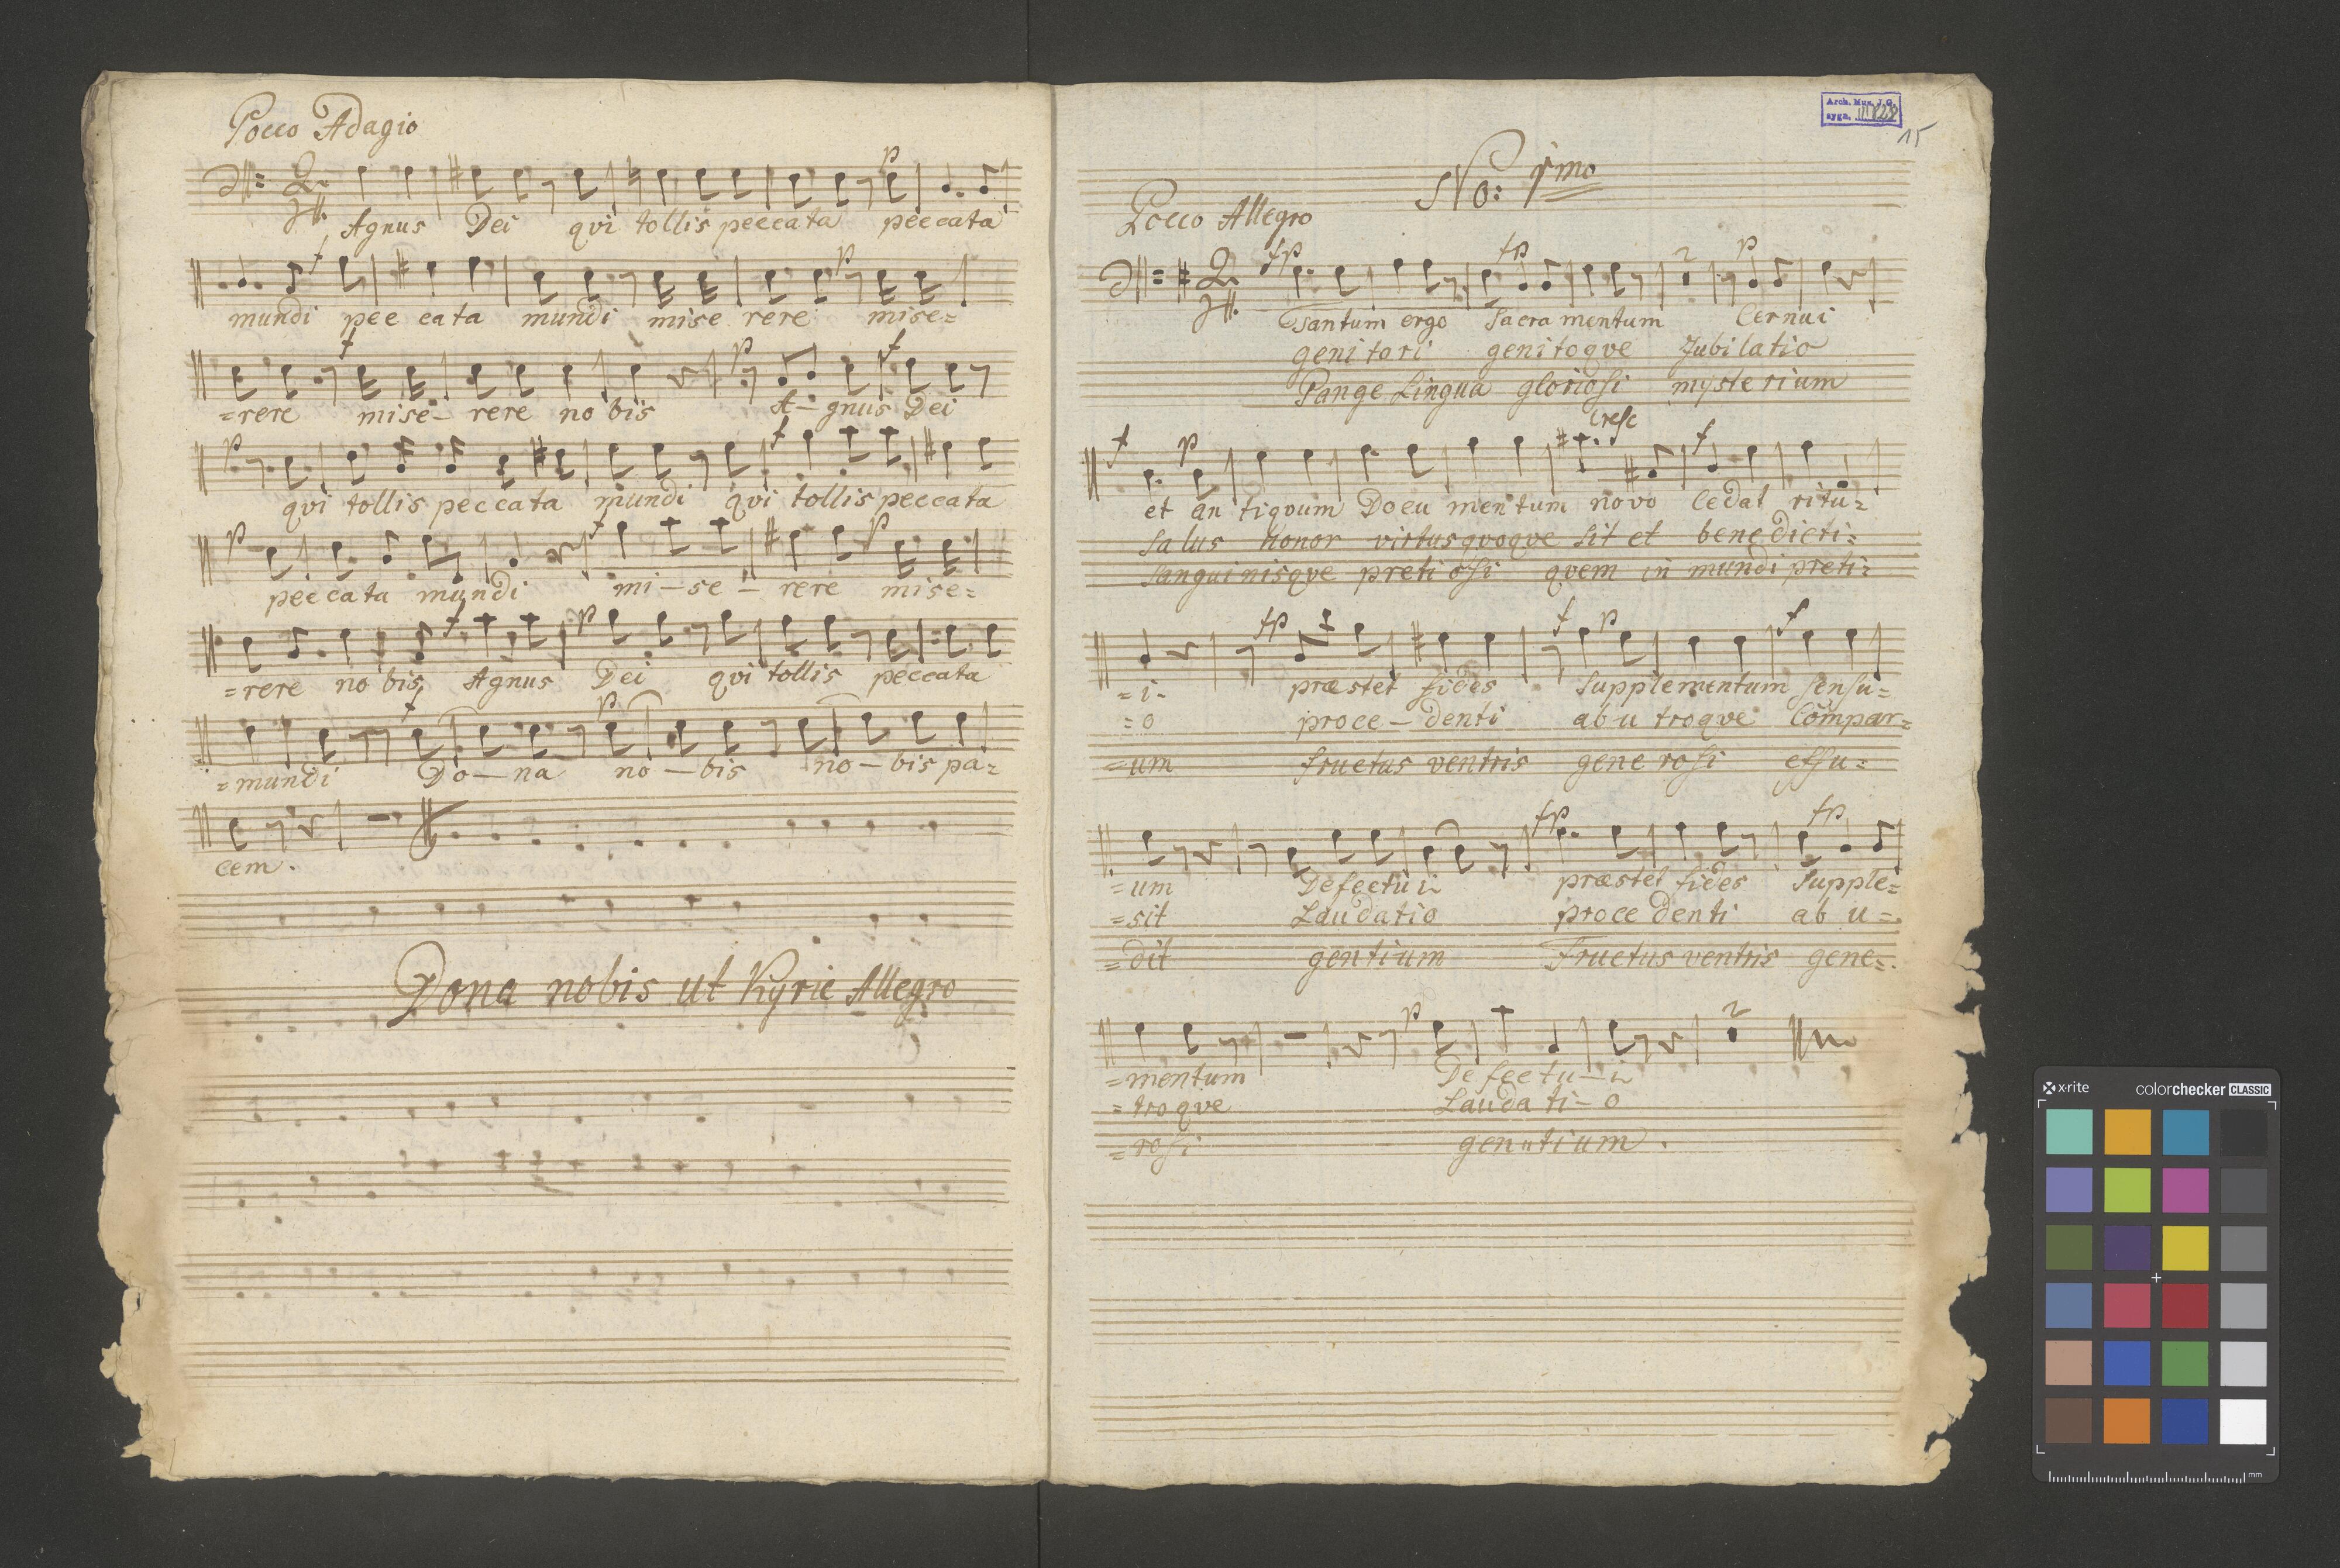 Pocco Adagio
p
Agnus Dei qvi tollis peccata peccata
f p
mundi peccata mundi mise rere mise=
f p f
=rere mise- rere no bis A- gnus Dei
p f
qvi tollis peccata mundi qvi tollis peccata
p f p
peccata mundi mi-se- rere mise=
f p
=rere no bis Agnus Dei qvi tollis peccata
f p
=mundi Do-na no-bis no-bis pa=
cem.
Dona nobis ut Kyrie Allegro
Arch. Muz. J.G.
sygn.
15
No: 1mo
Pocco Allegro
fp fp 2 p
Tantum ergo Sacra mentum Cernui
genitori genitoqve Jubilatio
Pange Lingua gloriosi mysterium
f p cresc f
et an tiqvum Docu mentum novo Cedat ritu=
Salus honor virtusqvoqve sit et benedicti=
Sanguinisqve pretiosi qvem in mundi preti=
fp f p f
=i- præstet fides Supplementum sensu=
=o proce-denti ab u troqve Compar=
=um fructus ventris gene rosi effu=
fp fp
=um Defectui præstet fides Supple=
=sit Laudatio proce denti ab u=
=dit gentium Fructus ventris gene=
p 2
=mentum Defectu-i
=troqve Laudati-o
=rosi gentium.
x-rite colorchecker CLASSIC
mm